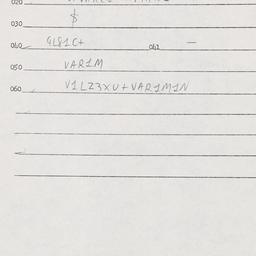 020
030 $
040 GL81C+ 042 —
050 VAR1M
060 V1LZ3XU+VAR1M1N